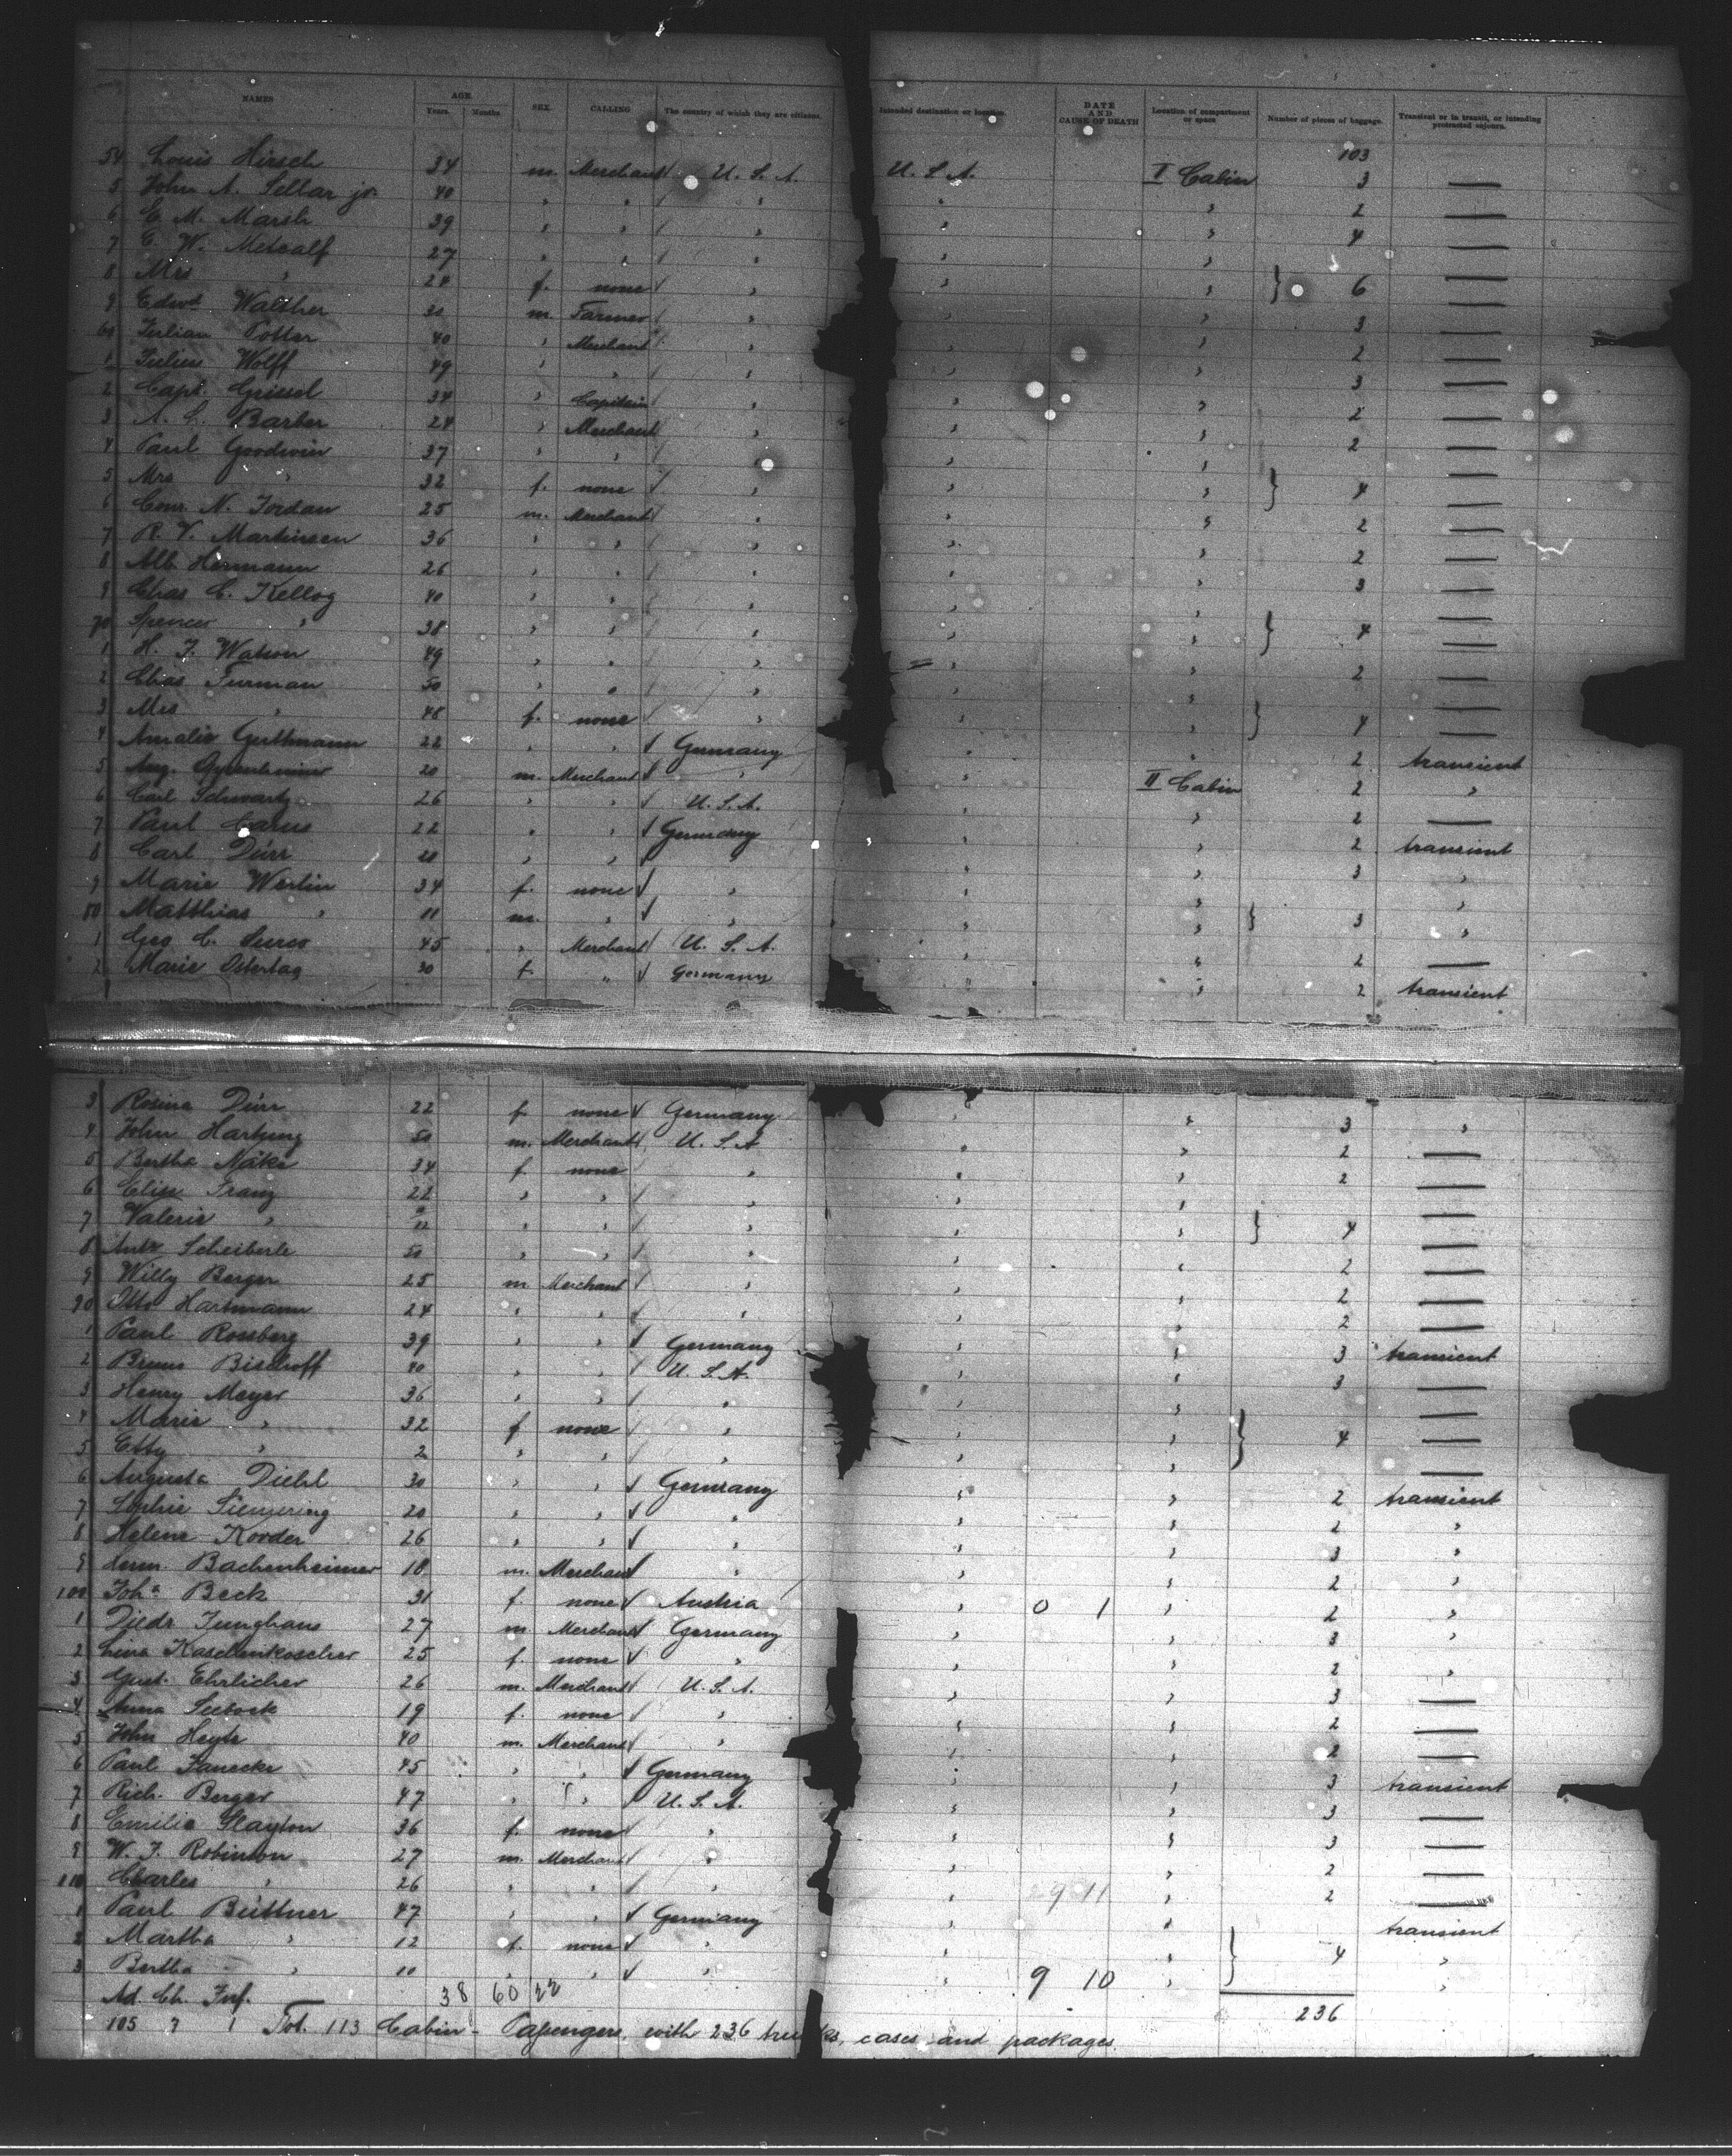 NAMES AGE. Years. Months. SEX. CALLING The country of which they are citizens. Intended destination or location. DATE AND CAUSE OF DEATH Location of compartment or space Number of pieces of baggage. Transient or in transit, or intending protracted sojourn.
103
54 Louis Hirsch 34 m. Merchant U. S. A. U. S. A. I Cabin 3 —
5 John A. Sellar jr. 40 " " " " " 2 —
6 C. M. Marsh 39 " " " " " 4 —
7 C. W. Metcalf 27 " " " " " —
8 Mrs " 24 f. none " " " } 6 —
9 Edwd Walther 30 m. Farmer " " " 3 —
60 Julian Potter 40 " Merchant " " " 2 —
1 Julius Wolff 49 " " " " " 3 —
2 Capt. Grissol 34 " Capitain " " " 2 —
3 A. L. Barber 24 " Merchant " " " 2 —
4 Paul Goodwin 37 " " " " " —
5 Mrs " 32 f. none " " " } 4 —
6 Conr. N. Jordan 25 m. Merchant " " " 2 —
7 R. V. Martinsen 36 " " " " " 2 —
8 Alb. Hermann 26 " " " " " 3 —
9 Chas C. Kellog 40 " " " " " —
70 Spencer " 38 " " " " " } 4 —
1 H. J. Watson 49 " " " " " 2 —
2 Chas. Furman 50 " " " " " —
3 Mrs " 48 f. none " " " } 4 —
4 Amalie Guthmann 22 " " Germany " " 2 transient
5 Aug. 20 m. Merchant " " II Cabin 2 "
6 Carl Schwartz 26 " " U. S. A. " " 2 —
7 Paul Carus 22 " " Germany " " 2 transient
8 Carl Dürr 20 " " " " " 3 "
9 Marie Werlin 34 f. none " " " "
80 Matthias " 11 m. " " " " } 3 "
1 Geo C. 45 " Merchant U. S. A. " " 2 —
2 Marie Ostertag 30 f. " Germany " " 2 transient
3 Rosina Dürr 22 f. none Germany " " 3 "
4 John Hartjung 50 m. Merchant U. S. A " " 2 —
5 Bertha Näke 34 f. none " " " 2 —
6 Elise Franz 22 " " " " " —
7 Valerie " 11 " " " " " } 4 —
8 Scheiberle 50 " " " " " 2 —
9 Willy Berger 25 m Merchant " " " 2 —
90 Otto Hartmann 24 " " " " " 2 —
1 Paul Rossberg 39 " " Germany " " 3 transient
2 Bruno Bischoff 40 " " U. S. A. " " 3 —
3 Henry Meyer 36 " " " " " —
4 Marie " 32 f none " " " } 4 —
5 Etty " 2 " " " " " —
6 Augusta Diehl 30 " " Germany " " 2 transient
7 Sophie 20 " " " " " 2 "
8 Helene Korder 26 " " " " " 3 "
9 Bachenheimer 18 m. Merchant " " " 2 "
100 Joha Beck 31 f. none Austria " 0 1 " 2 "
1 Diedr Junghans 27 m Merchant Germany " " 3 "
2 Lina Kaschenkoscher 25 f. none " " " 2 "
3 Gust. Ehrlicher 26 m. Merchant U. S. A. " " 3 —
4 Anna Seebeck 19 f. none " " " 2 —
5 John Heyte 40 m. Merchant " " " 2 —
6 Paul Janecke 45 " " Germany " " 3 transient
7 Rich. Berger 47 " " U. S. A. " " 3 —
8 Emilie Slayton 36 f. none " " " 3 —
9 W. J. Robinson 27 m. Merchant " " " 2 —
110 Charles " 26 " " " " 29 11 " 2 —
1 Paul Büttner 47 " " Germany " " transient
2 Martha " 12 f. none " " " } 4 "
3 Bertha " 11 " " " " 9 10 " "
Ad. Ch. Inf. 38 60 22 236
105 7 1 Tot. 113 Cabin - Passengers, with 236 trunks, cases and packages.